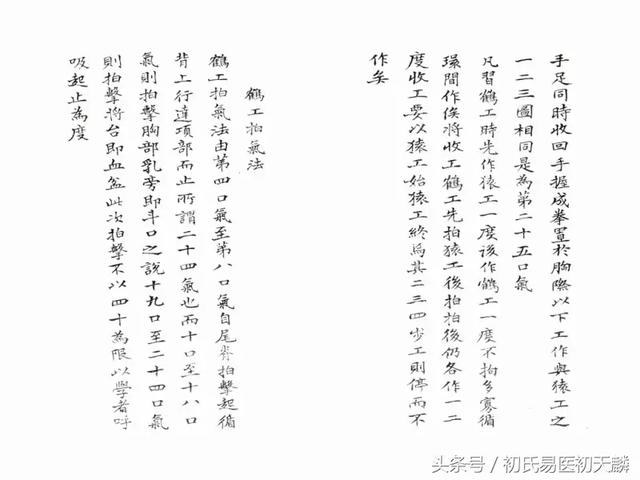 手足同時收回手握成拳置於胸際以下工作與猿工之
一二三圖相同是為第二十五口氣
凡習鶴工時先作猿工一度後作鶴工一度不拘多寡循
環間作俟將收工鶴工先拍猿工後拍拍後仍各作一二
度收工要以猿工始猿工終焉其二三四步工則停而不
作矣
鶴工拍氣法
鶴工拍氣法由第四口氣至第八口氣自尾脊拍擊起循
背上行達項部而止所謂二十四氣也而十口至十八口
氣則拍擊胸部乳旁即斗口之說十九口至二十四口氣
則拍擊將台即血盆此次拍擊不以四十為限以學者呼
吸起止為度
头条号／初氏易医初天麟